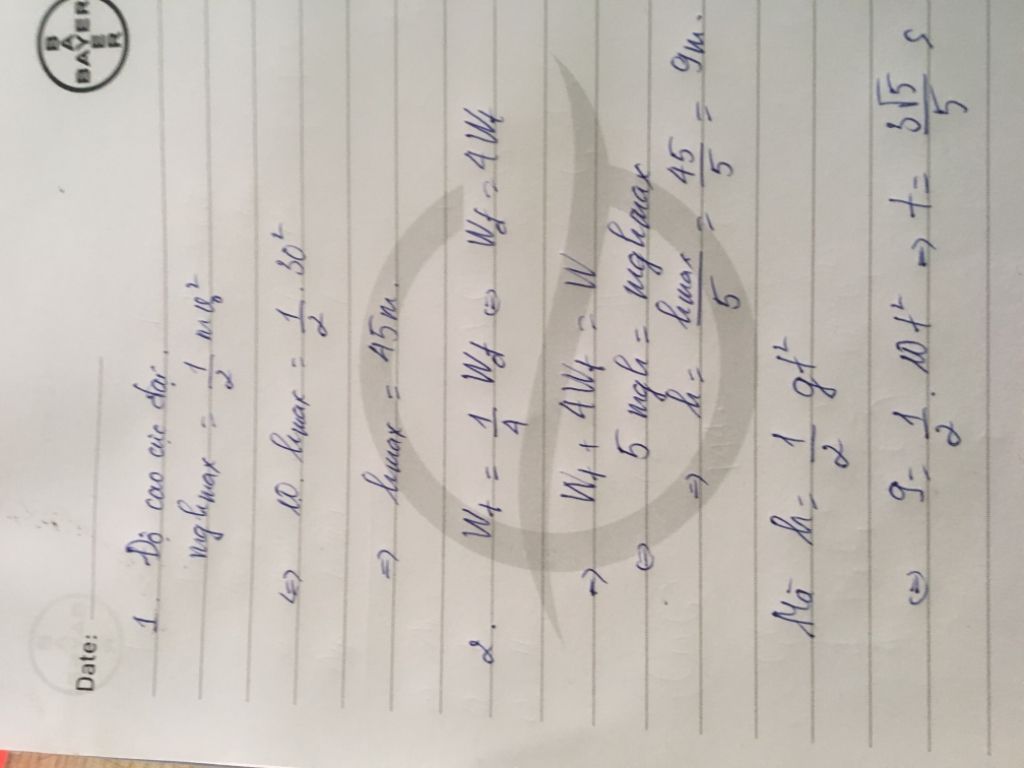 BAYER
BAYER
Date:
1. Độ cao cực đại.
mghmax = 1/2 mv₀²
⇔ 10. hmax = 1/2 . 30²
⇒ hmax = 45m.
2. Wt = 1/4 Wđ ⇔ Wđ = 4Wt
⇒ Wt + 4Wt = W
⇔ 5mgh = mghmax
⇒ h = hmax/5 = 45/5 = 9m.
Mà h = 1/2 gt²
⇔ 9 = 1/2 . 10t² ⇒ t = 3√5/5 s